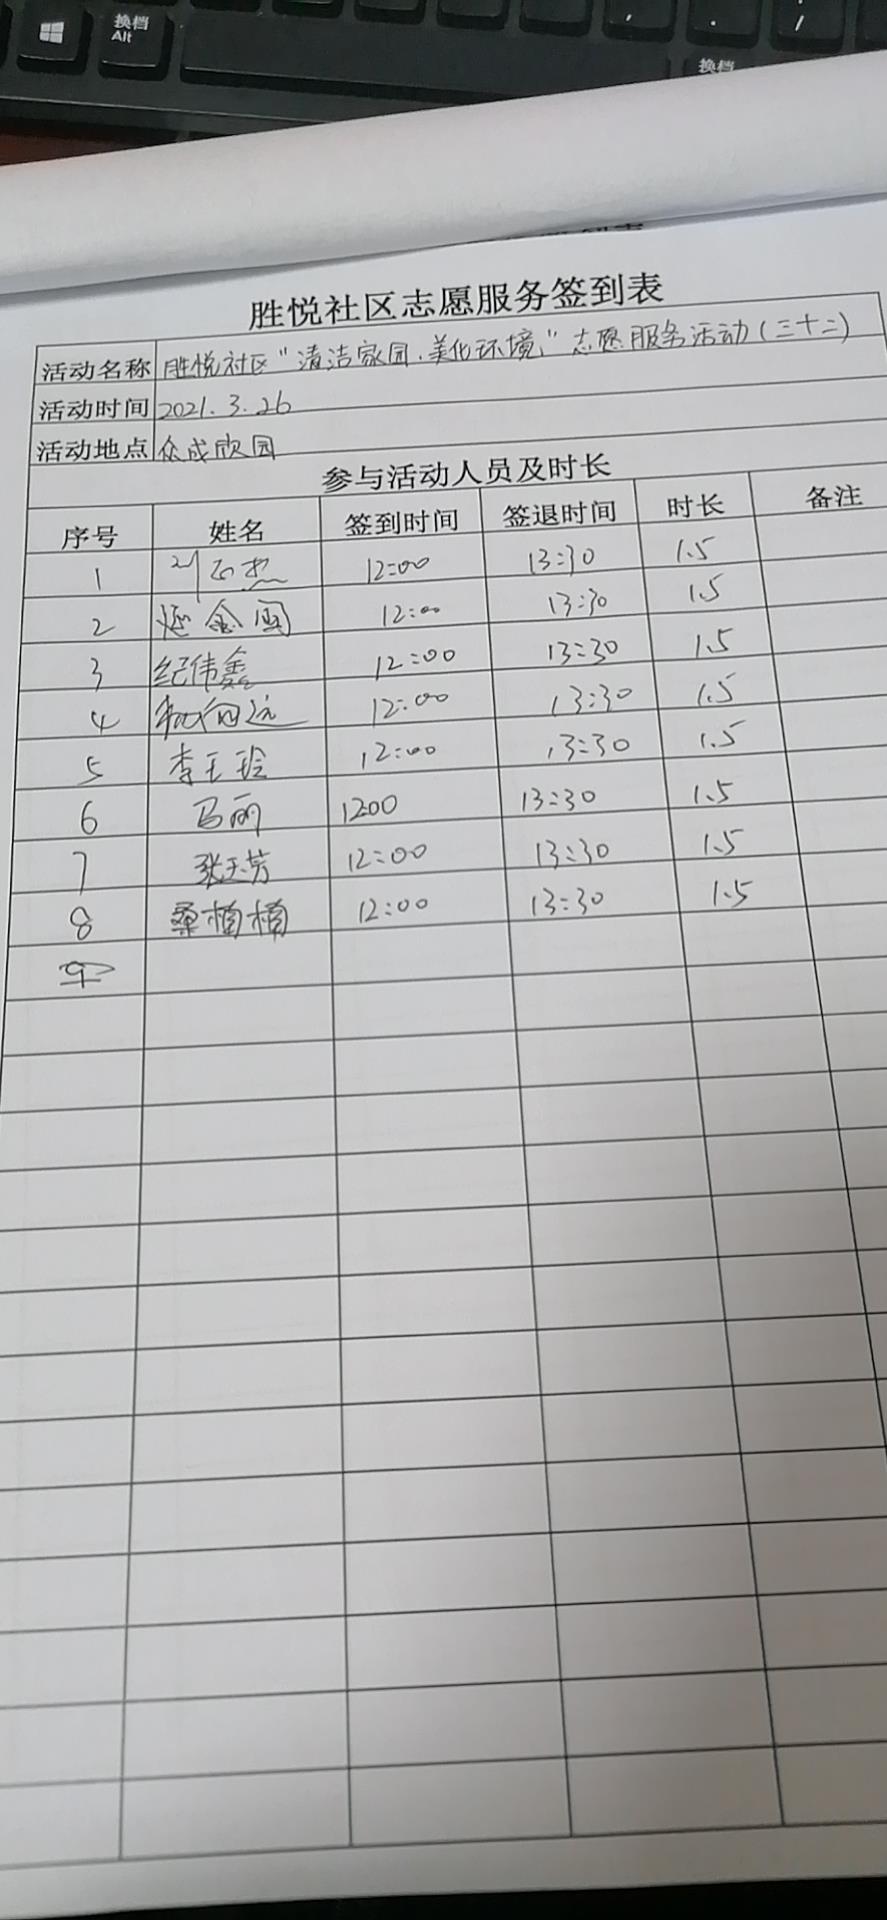 换档
Alt
换档
, . /
胜悦社区志愿服务签到表
活动名称 胜悦社区"清洁家园、美化环境"志愿服务活动(三十二)
活动时间 2021.3.26
活动地点 众成欣园
参与活动人员及时长
序号 姓名 签到时间 签退时间 时长 备注
1 12:00 13:30 1.5
2 12:00 13:30 1.5
3 纪伟鑫 12:00 13:30 1.5
4 12:00 13:30 1.5
5 李玉玲 12:00 13:30 1.5
6 马丽 1200 13:30 1.5
7 张玉芳 12:00 13:30 1.5
8 桑楠楠 12:00 13:30 1.5